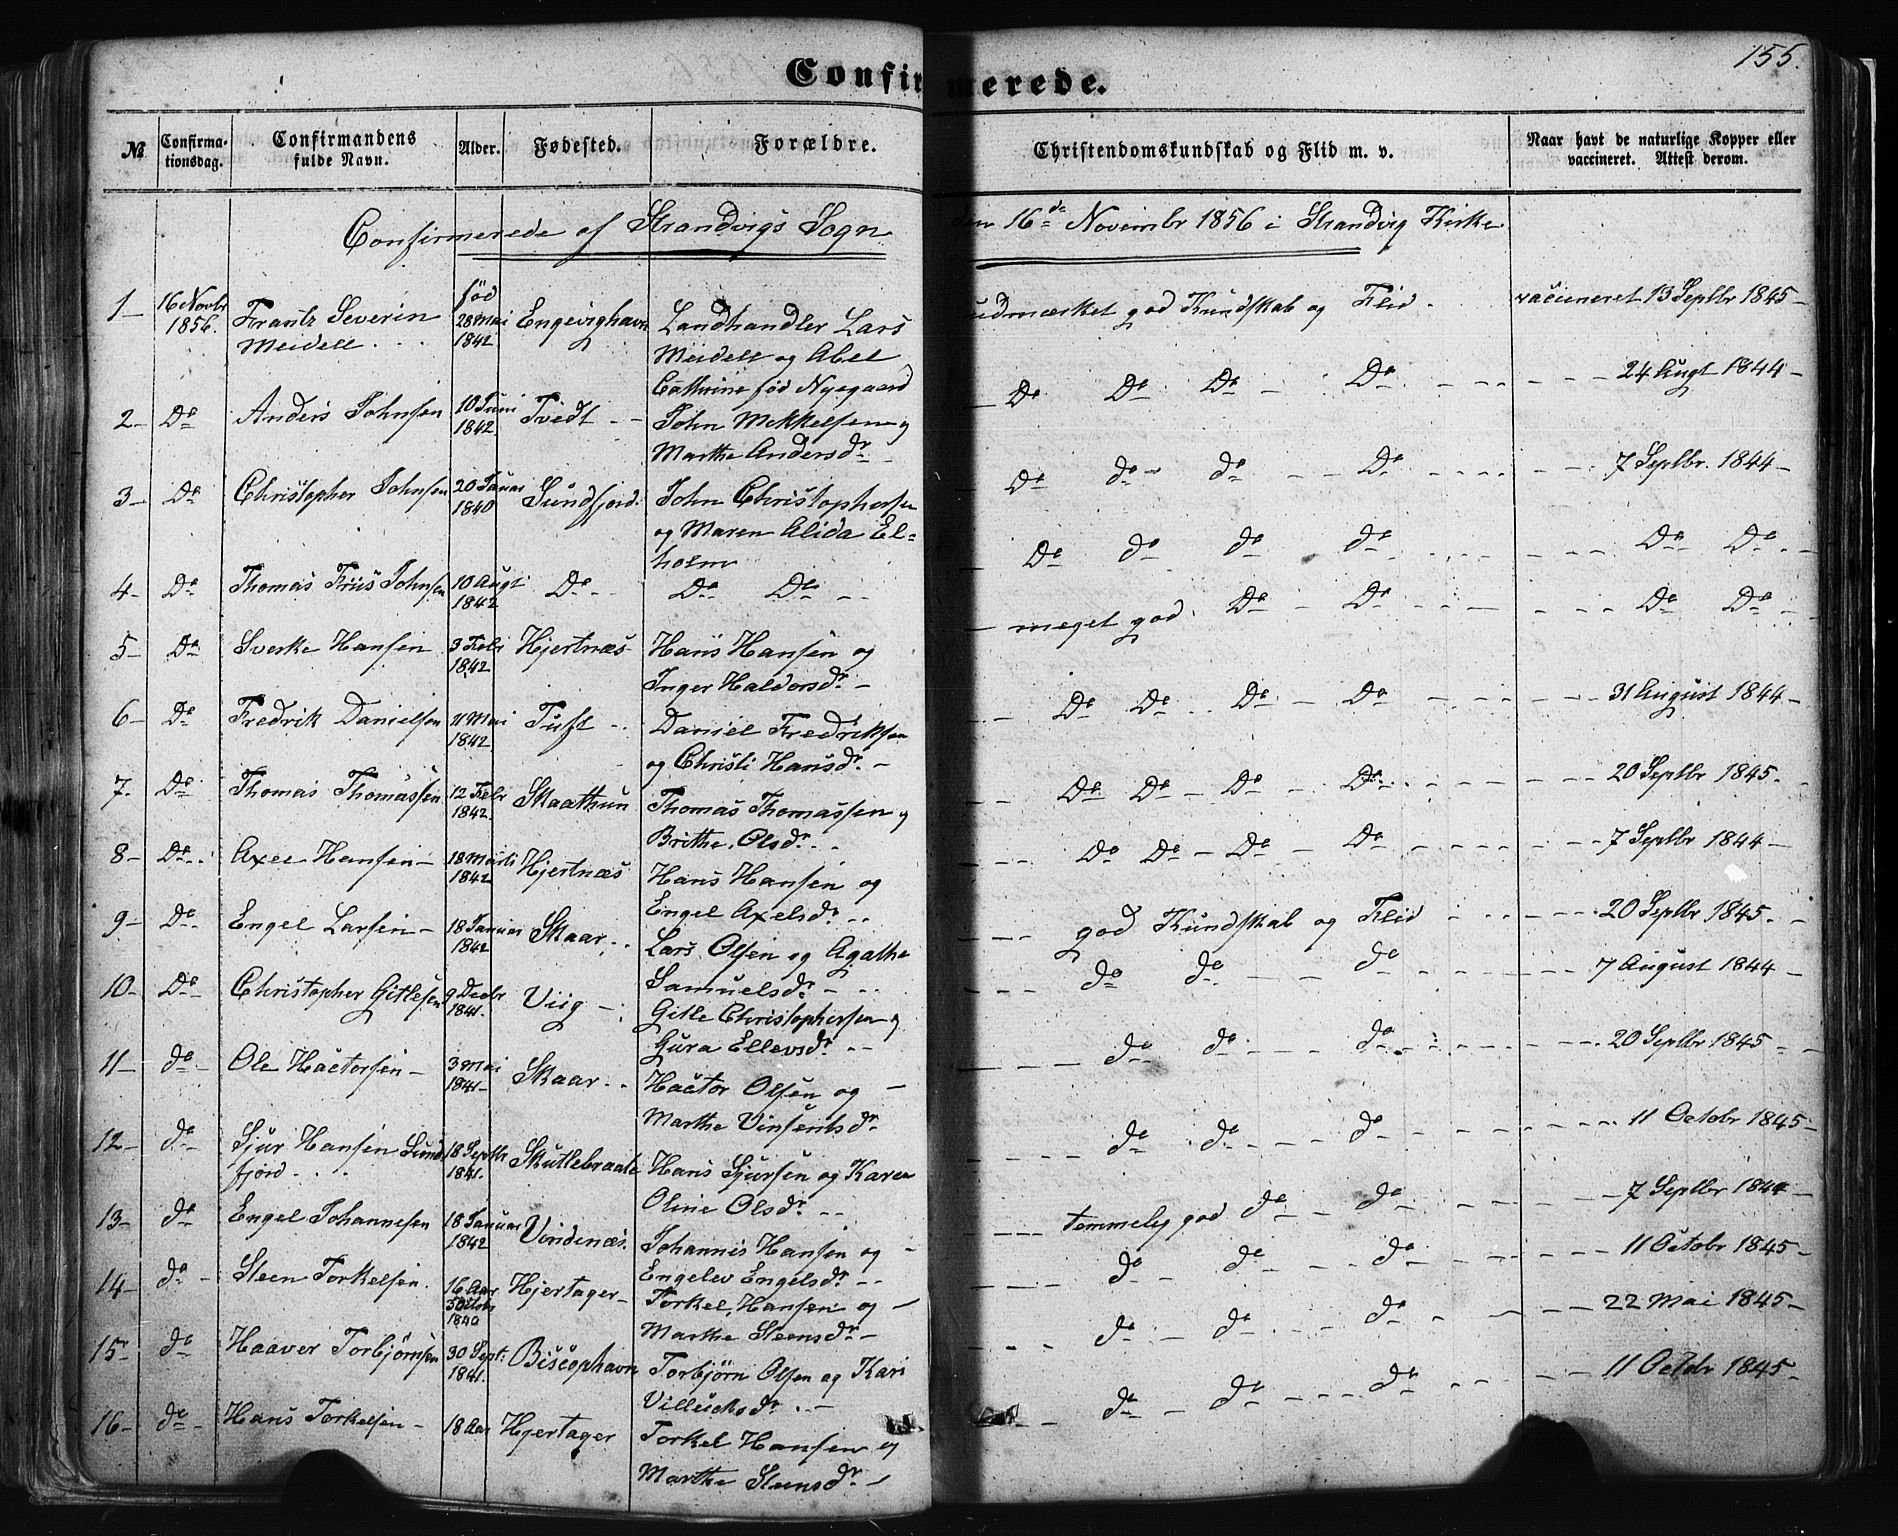 155.
Confirmerede.
№ Confirmationsdag. Confirmandens fulde Navn. Alder. Fødested. Forældre. Christendomskundskab og Flid m. v. Naar havt de naturlige Kopper eller vaccineret. Attest derom.
Confirmerede af Strandvigs Sogn den 16de Novembr 1856 i Strandvig Kirke
1 – 16 Novbr 1856. Frantz Severin Meidell . . . fød 28 Mai 1842 Engevighavn Landhandler Lars Meidell og Abel Cathrine fød Nyegaard udmærket god Kundskab og Flid. vaccineret 13 Septbr 1845 –
2 – Do Anders Johnsen 10 Juni 1842. Tvedt – John Mikkelsen og Marthe Andersdr. Do Do Do – Do 24 Augt 1844 –
3 – Do Christopher Johnsen 20 Januar 1840 Sundfjord. John Christophersen og Maren Alida Elholm Do do do Do 7 Septbr. 1844 –
4 – Do Thomas Friis Johnsen 10 Augt 1842 Do Do Do Do do do do Do Do
5 – Do Sverke Hansen 3 Febr 1842 Hjertnæs Hans Hansen og Inger Haldorsdr. – meget god Do Do Do Do
6 – Do Fredrik Danielsen 11 Mai 1842. Tuft Daniel Fredriksen og Christi Hansdr. – Do Do Do Do 31 August 1844 –
7. Do Thomas Thomassen 12 Febr 1842. Skaathun Thomas Thomassen og Brithe Olsdr. Do Do Do Do 20 Septbr 1845.
8 – Do Axel Hansen – 18 Marts 1842 Hjertnæs Hans Hansen og Engel Axelsdr. Do Do Do Do 7 Septbr 1844 –
9 – Do Engel Larsen – 18 Januar 1842 Skaar Lars Olsen og Agathe Samuelsdr. god Kundskab og Flid 20 Septbr 1845.
10 – Do Christopher Gitlesen 9 Decbr 1841. Viig – Gitle Christophersen og Gura Ellevsdr. do do do 7 August 1844 –
11 – do Ole Hactorsen – 3 Mai 1841 – Skaar Hactor Olsen og Marthe Vinsentsdr. do do do 20 Septbr 1845 –
12 – do Sjur Hansen Sundfjord 18 Septbr 1841. Skutlebraate Hans Sjursen og Karen Oline Olsdr. do do do 11 Octobr 1845 –
13 – do Engel Johannesen 18 Januar 1842 Vindenæs. Johannis Hansen og Engelev Engelsdr. temmelig god do do 7 Septbr 1844 –
14 – do Steen Torkelsen. 16 Aar 1840 Hjertager – Torkel Hansen og Marthe Steensdr. – do do do 11 Octobr 1845 –
15 – do Haaver Torbjørnsen 30 Sept: 1841. Biscophavn Torbjörn Olsen og Kari do do do 22 Mai 1845 –
16 – do Hans Torkelsen – 18 Aar Hjertager Torkel Hansen og Marthe Steensdr. – do do do 11 Octobr 1845 –